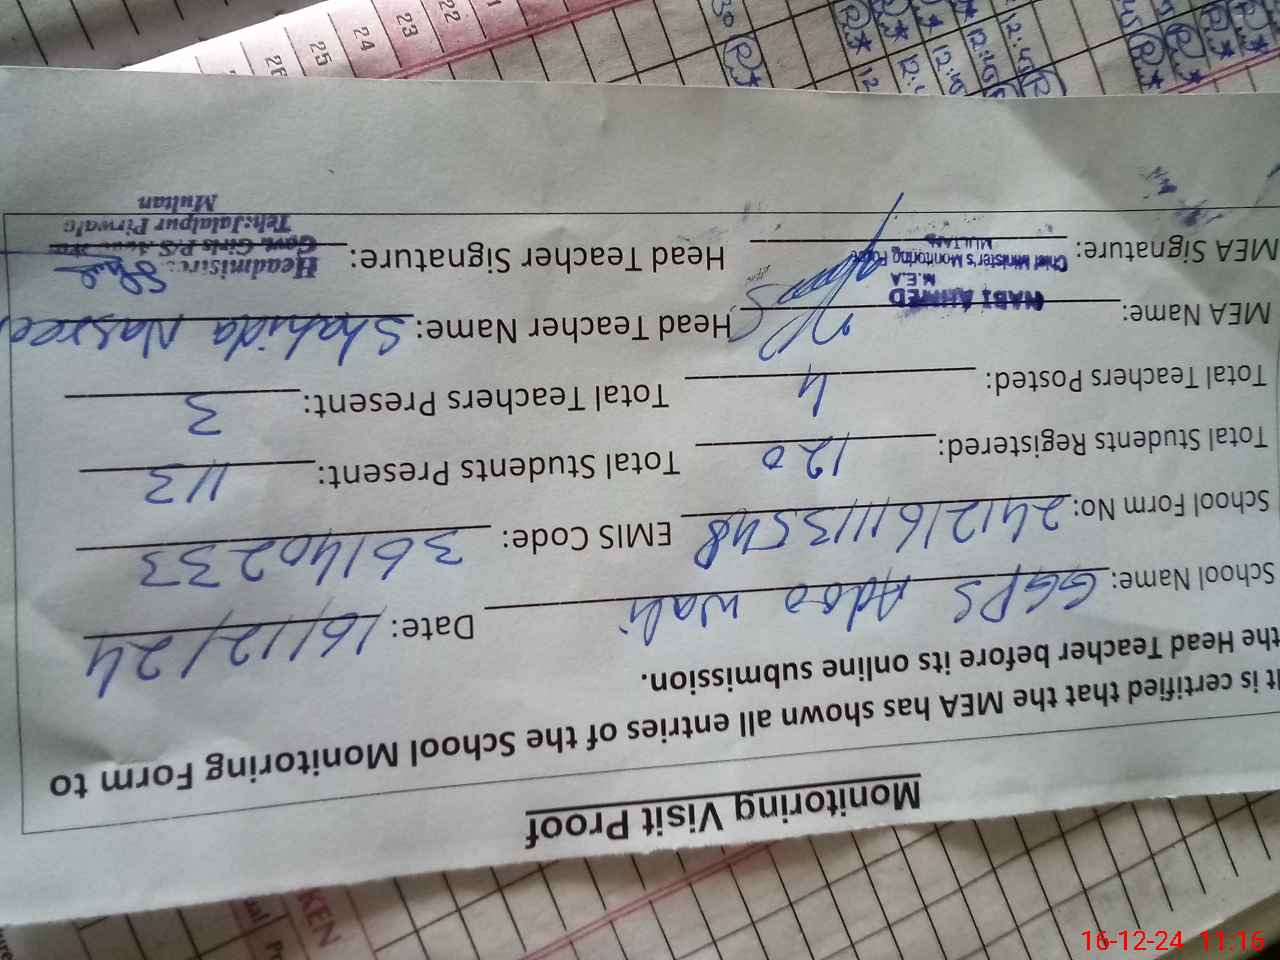 Monitoring Visit Proof
It is certified that the MEA has shown all entries of the School Monitoring Form to
the Head Teacher before its online submission.
School Name: GGPS Adoo wali Date: 16/12/24
School Form No: 241216111113548 EMIS Code: 36140233
Total Students Registered: 120 Total Students Present: 113
Total Teachers Posted: 4 Total Teachers Present: 3
MEA Name: NABI AHMED Head Teacher Name: Shahida Nasreen
M.E.A
Chief Minister's Monitoring Force
MULTAN
MEA Signature: Head Teacher Signature:
Headmistress
Govt. Girls P/S
Teh: Jalalpur Pirwala
Multan
22
23
24
25
26
KEN
16-12-24 11:16